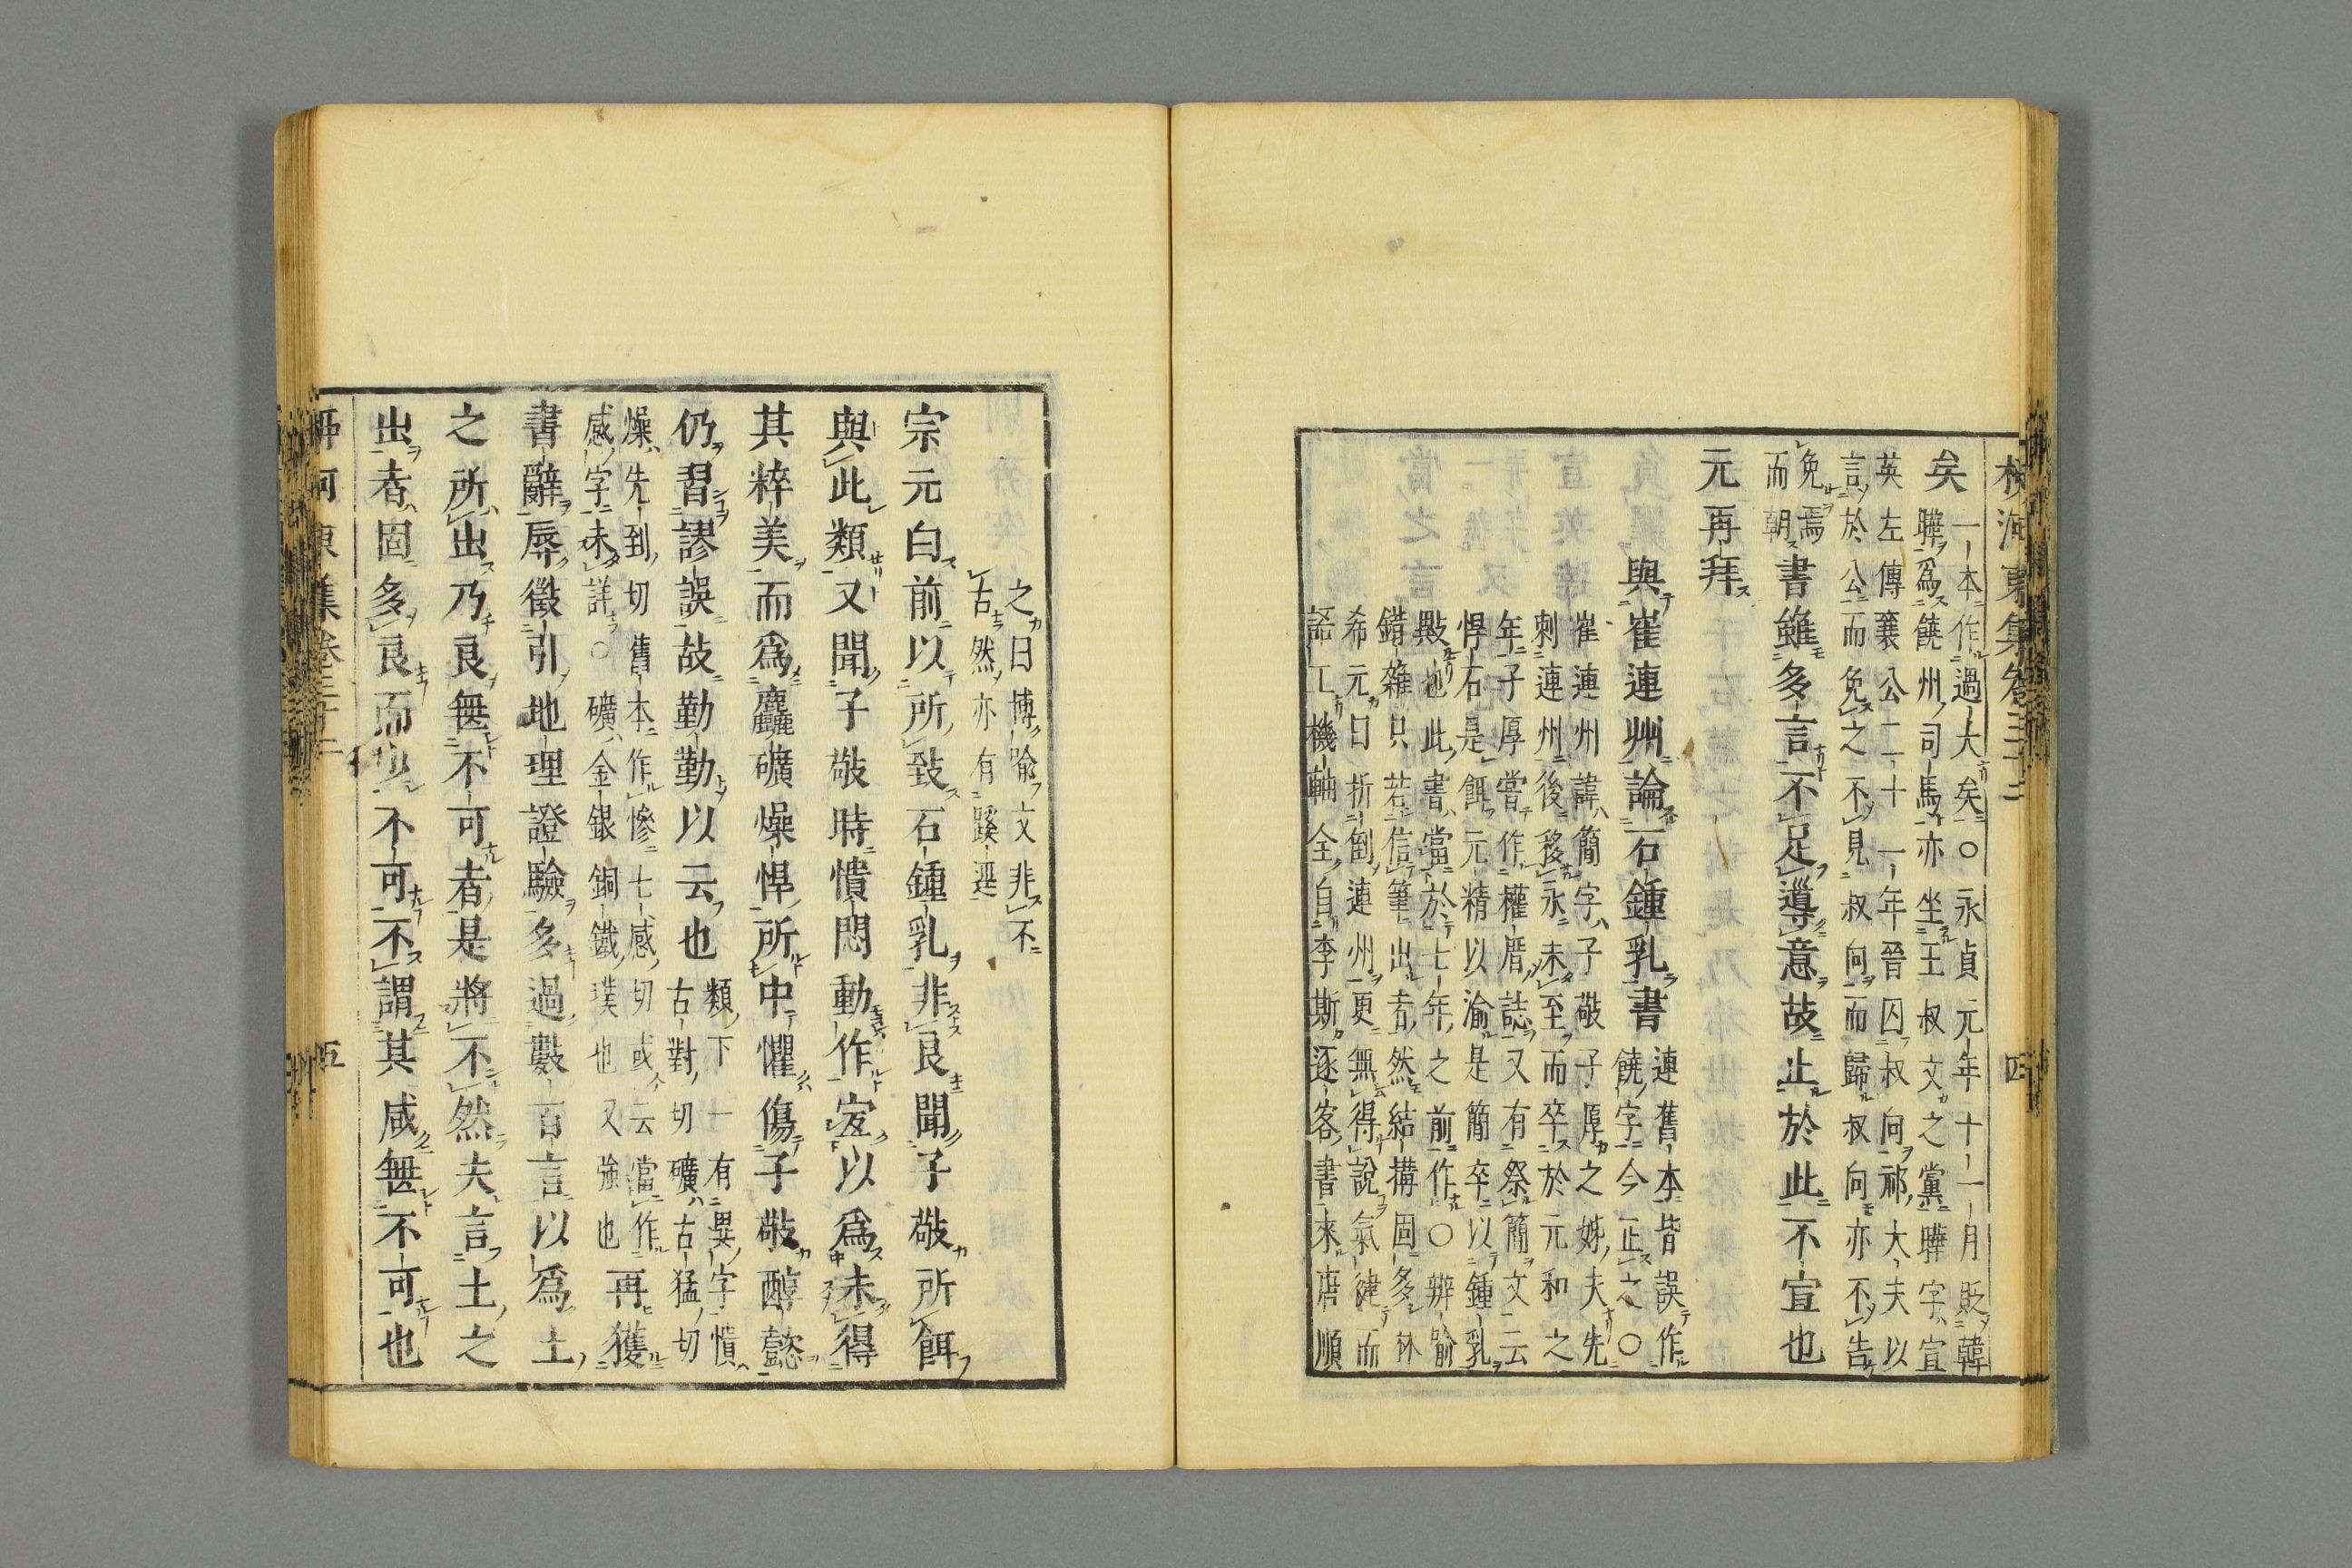 柳河東集卷三十二 四
矣一本作過大矣○永貞元年十一月貶韓
曄爲饒州司馬亦坐王叔文之黨曄字宣
英左傳襄公二十一年晉囚叔向祁大夫以
言於公而免之不見叔向而歸叔向亦不告
免焉
而朝書雖多言不足導意故止於此不宣也
元再拜
與崔連州論石鍾乳書連舊本皆誤作
饒字今正之○
崔連州諱簡字子敬子厚之姊夫先
刺連州後移永未至而卒於元和之
年子厚嘗作權厝誌又有祭簡文二云
悍石是餌元精以渝是簡卒以鍾乳
歟也此書當於七年之前作○辨諭
錯雜只若信筆出者然結搆固多林
希元曰折倒連州更無得說氣健而
語工機軸全自李斯逐客書來唐順
之曰博喻文非不
古然亦有蹊逕
宗元白前以所致石鍾乳非良聞子敬所餌
與此類又聞子敬時憒悶動作宐以爲未得
其粹美而爲麤礦燥悍所中懼傷子敬醇懿
仍習謬誤故勤勤以云也類下一有異字憒
古對切礦古猛切
燥先到切舊本作慘七感切或云當作
感字未詳○礦金銀銅鐵璞也又強也再獲
書辭辱徵引地理證驗多過數百言以爲土
之所出乃良無不可者是將不然夫言土之
出者固多良而少不可不謂其咸無不可也
柳河東集卷三十二 五